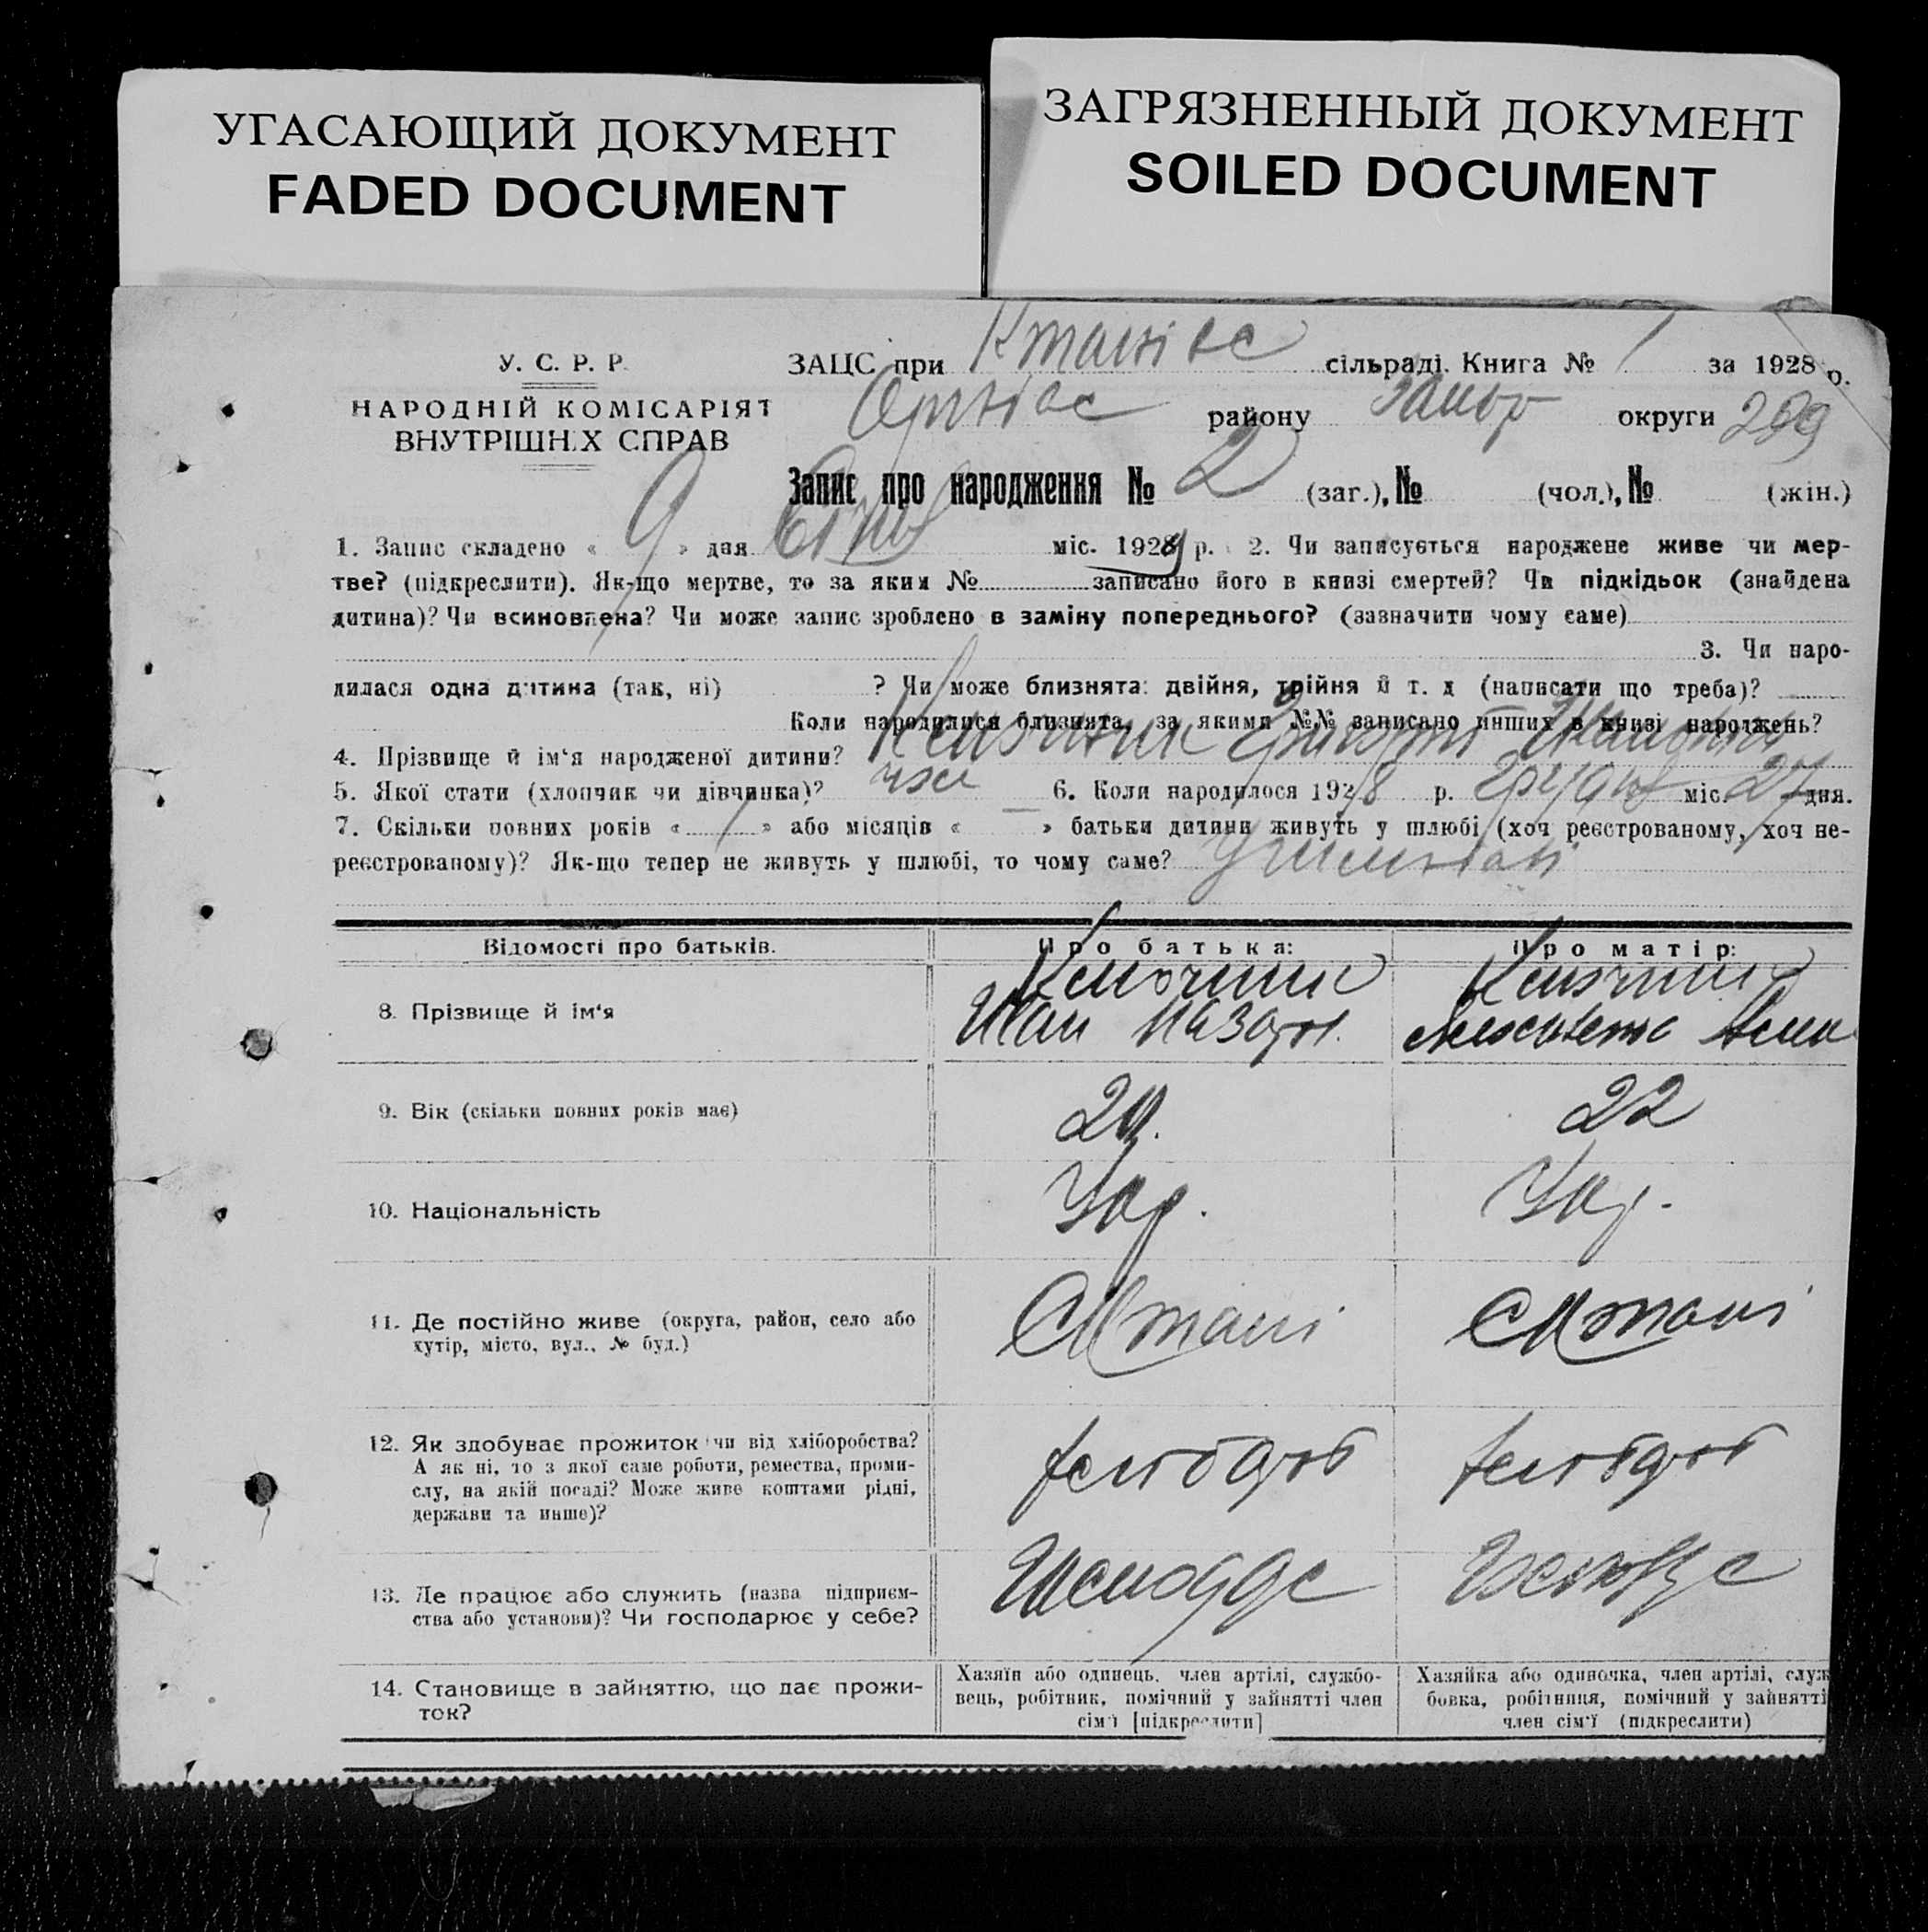 УГАСАЮЩИЙ ДОКУМЕНТ
FADED DOCUMENT
ЗАГРЯЗНЕННЫЙ ДОКУМЕНТ
SOILED DOCUMENT
У. С. Р. Р.
НАРОДНІЙ КОМІСАРІЯТ
ВНУТРІШНІХ СПРАВ
ЗАЦС при сільраді. Книга № 1 за 1928 р.
району Запор округи 299
Запис про народження № 2 (заг.), № (чол.), № (жін.)
1. Запис складено « 9 » дня Січня міс. 1929 р. 2. Чи записується народжене живе чи мер-
тве? (підкреслити). Як-що мертве, то за яким № записано його в книзі смертей? Чи підкідьок (знайдена
дитина)? Чи всиновлена? Чи може запис зроблено в заміну попереднього? (зазначити чому саме)
3. Чи наро-
дилася одна дитина (так, ні) ? Чи може близнята: двійня, трійня й т. д (написати що треба)?
Коли народилися близнята, за якими №№ записано инших в книзі народжень?
4. Прізвище й ім‘я народженої дитини?
5. Якої стати (хлопчик чи дівчинка)? чол 6. Коли народилося 1928 р. Грудня міс. 27 дня.
7. Скільки повних років « 1 » або місяців « — » батьки дитини живуть у шлюбі (хоч реєстрованому, хоч не-
реєстрованому)? Як-що тепер не живуть у шлюбі, то чому саме?
Відомості про батьків. Про батька: Про матір:
8. Прізвище й ім‘я
Іван Назар.
9. Вік (скільки повних років має) 22
10. Національність Укр. Укр.
11. Де постійно живе (округа, район, село або
хутір, місто, вул., № буд.)
12. Як здобуває прожиток чи від хліборобства?
А як ні, то з якої саме роботи, ремества, проми-
слу, на якій посаді? Може живе коштами рідні,
держави та инше)?
хлібороб хлібороб
13. Де працює або служить (назва підприєм-
ства або установи)? Чи господарює у себе?
14. Становище в зайняттю, що дає прожи-
ток?
Хазяїн або одинець, член артілі, службо-
вець, робітник, помічний у зайнятті член
сім‘ї [підкреслити]
Хазяйка або одиночка, член артілі, служ
бовка, робітниця, помічний у зайнятті
член сім‘ї (підкреслити)